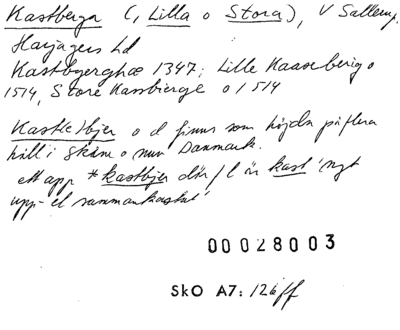 Kastberga (, Lilla o Stora), V Sallerup,
Harjagers hd
Kastbyerghæ 1347; Lille Kaaseberig o
1514, Store Kassbierge o 1514
Kastletbjer o d finns som höjdn på flera
håll i Skåne o nuv Danmark.
ett app *kastbjer där f l är kast 'ngt
upp- el sammankastat'
00028003
SkO A7: 126 ff